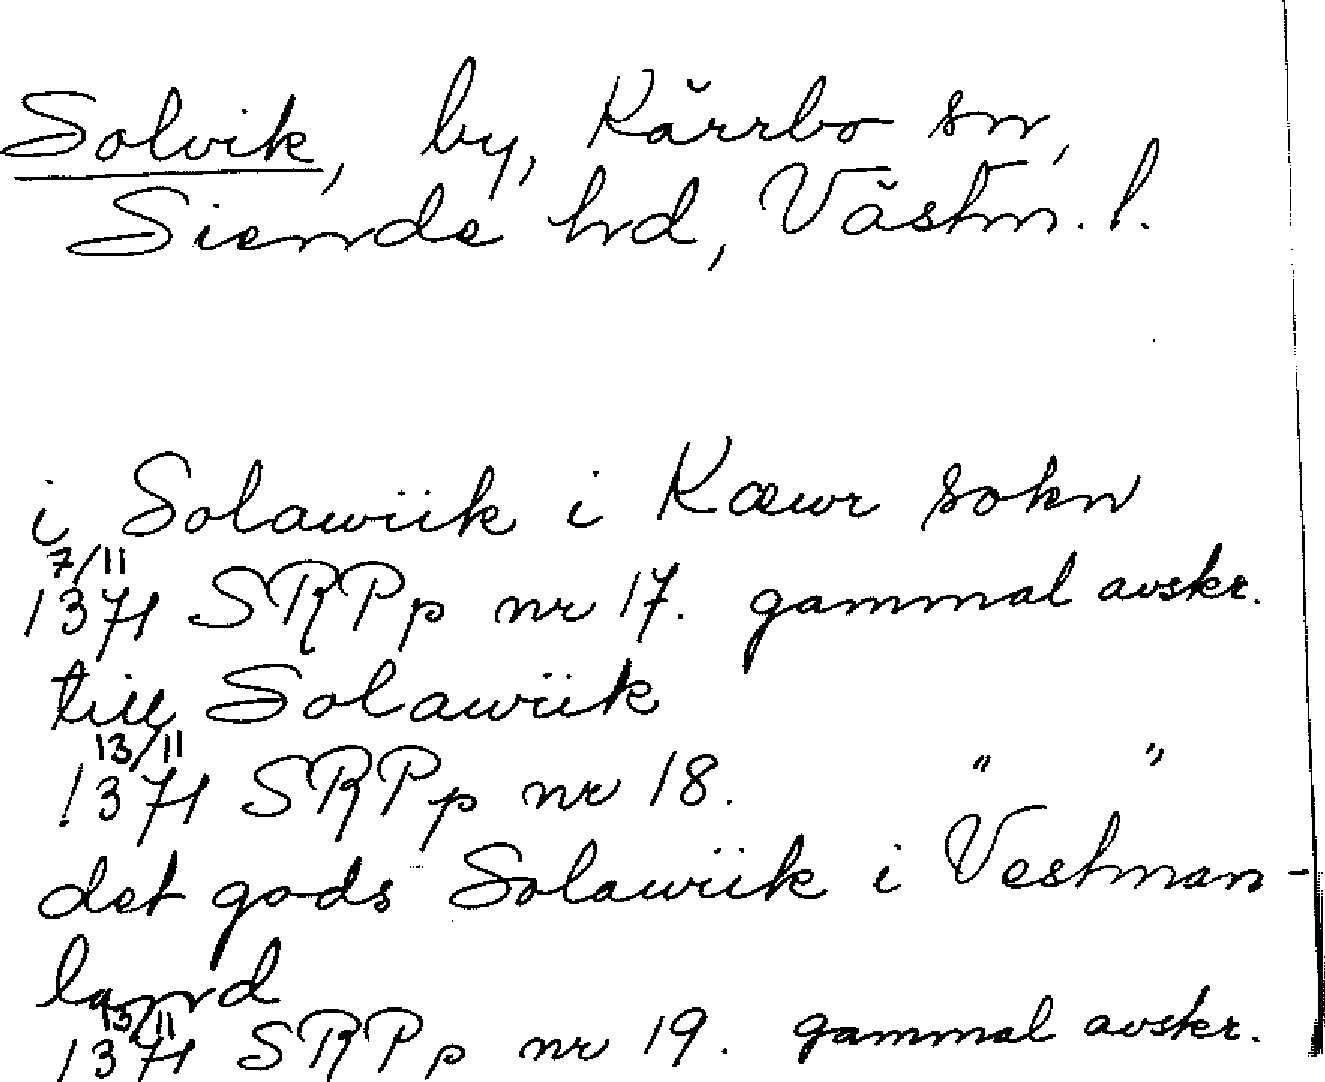 Solvik, by, Kärrbo sn,
Siende hd, Västm. l.
i Solawiik i Kæwr sokn
7/11
1371 SRPp nr 17. gammal avskr.
till Solawiik
13/11
1371 SRPp nr 18. " "
det gods Solawiik i Vestman-
land
13/11
1371 SRPp nr 19. gammal avskr.